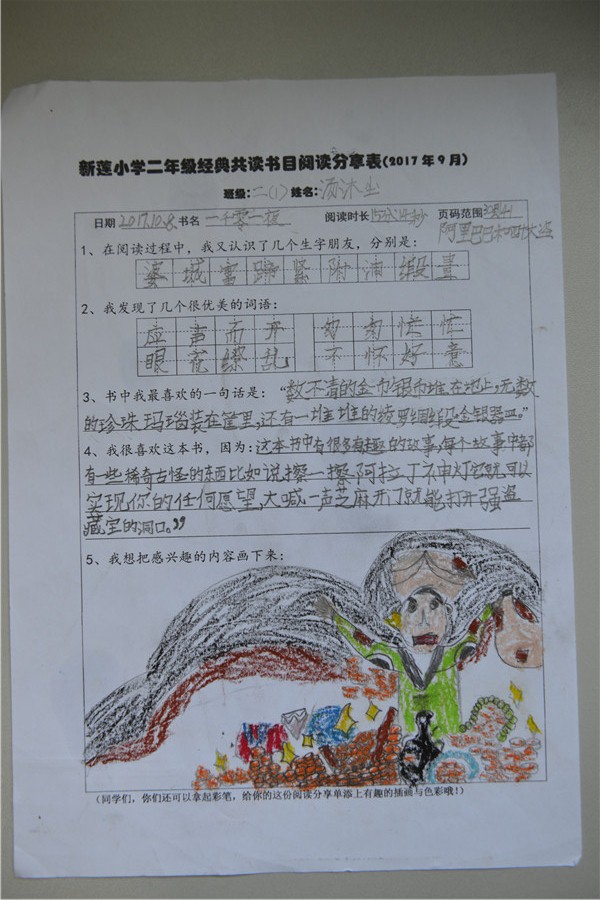 新莲小学二年级经典共读书目阅读分享表(2017年9月)
班级:二(1) 姓名:汤沐
日期2017.10.8 书名 一千零一夜 阅读时长 15分 秒 页码范围
阿里巴巴和四十大盗
1、在阅读过程中，我又认识了几个生字朋友，分别是:
婆 城 富 蹄 紧 附 浦 缎
2、我发现了几个很优美的词语:
应 声 而 开 匆 匆 忙 忙
眼 花 缭 乱 不 怀 好 意
3、书中我最喜欢的一句话是:“数不清的金币银币堆在地上,无数
的珍珠玛瑙装在筐里,还有一堆堆的绫罗绸缎金银器皿。”
4、我很喜欢这本书，因为:这本书中有很多有趣的故事,每个故事中都
有一些稀奇古怪的东西比如说擦一擦阿拉丁神灯它就可以
实现你的任何愿望,大喊一声芝麻开门就能打开强盗
藏宝的洞口。”
5、我想把感兴趣的内容画下来:
(同学们，你们还可以拿起彩笔，给你的这份阅读分享单添上有趣的插画与色彩哦!)